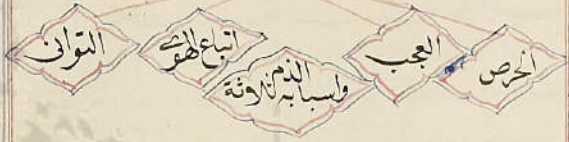 الحرص
العجب
الذم
واسبابه ثلاثة
اتباع الهوى
التوانى